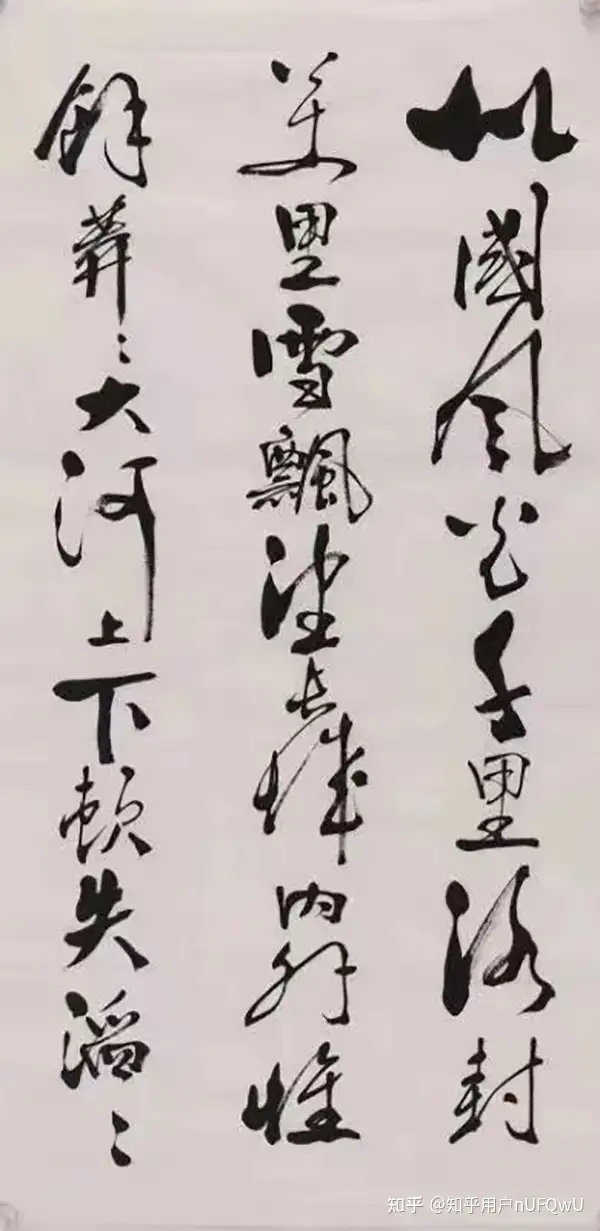 北國風光千里冰封
萬里雪飄望長城内外惟
餘莽々大河上下頓失滔々
知乎 @知乎用户nUFQwU